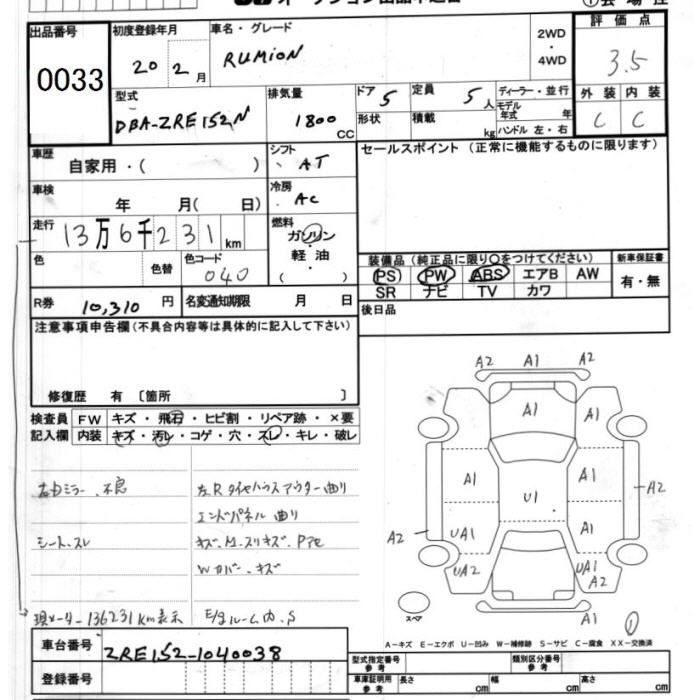 出品番号
0033
初度登録年月
20 2 月
車名・グレード
RUMION
2WD
・
4WD
評価点
3.5
型式
DBA-ZRE152N
排気量
1800 CC
ドア 5
定員 5 人
形状
積載 kg
ディーラー・並行
モデル年式 年
ハンドル 左・右
外装 内装
C C
車歴
自家用・( )
シフト
AT
セールスポイント (正常に機能するものに限ります)
車検
年 月( 日)
冷房
AC
走行
13万6千231 km
燃料
ガソリン
軽油
( )
色 色替
色コード
040
装備品 (純正品に限り〇をつけてください)
新車保証書
PS PW ABS エアB AW
SR ナビ TV カワ
有・無
R券 10,310 円
名変通知期限 月 日
後日品
注意事項申告欄 (不具合内容等は具体的に記入して下さい)
修復歴 有 〔箇所 〕
検査員記入欄
FW キズ・飛石・ヒビ割・リペア跡・×要
内装 キズ・汚レ・コゲ・穴・スレ・キレ・破レ
右ドミラー、不良
左Rタイヤハウスアウター曲り
エンドパネル曲り
シート、スレ
Wカバー、キズ
現メーター136231km表示
E/gルーム内、S
A2 A1 A2
A1
A1
A1 A1
U1
A2
A2
UA1 A1
UA2 UA1
A2
スペア
A1
①
A－キズ E－エクボ U－凹み W－補修跡 S－サビ C－腐食 XX－交換済
車台番号
ZRE152-1040038
登録番号
型式指定番号 参考
類別区分番号 参考
車庫証明用 参考
長さ cm 幅 cm 高さ cm